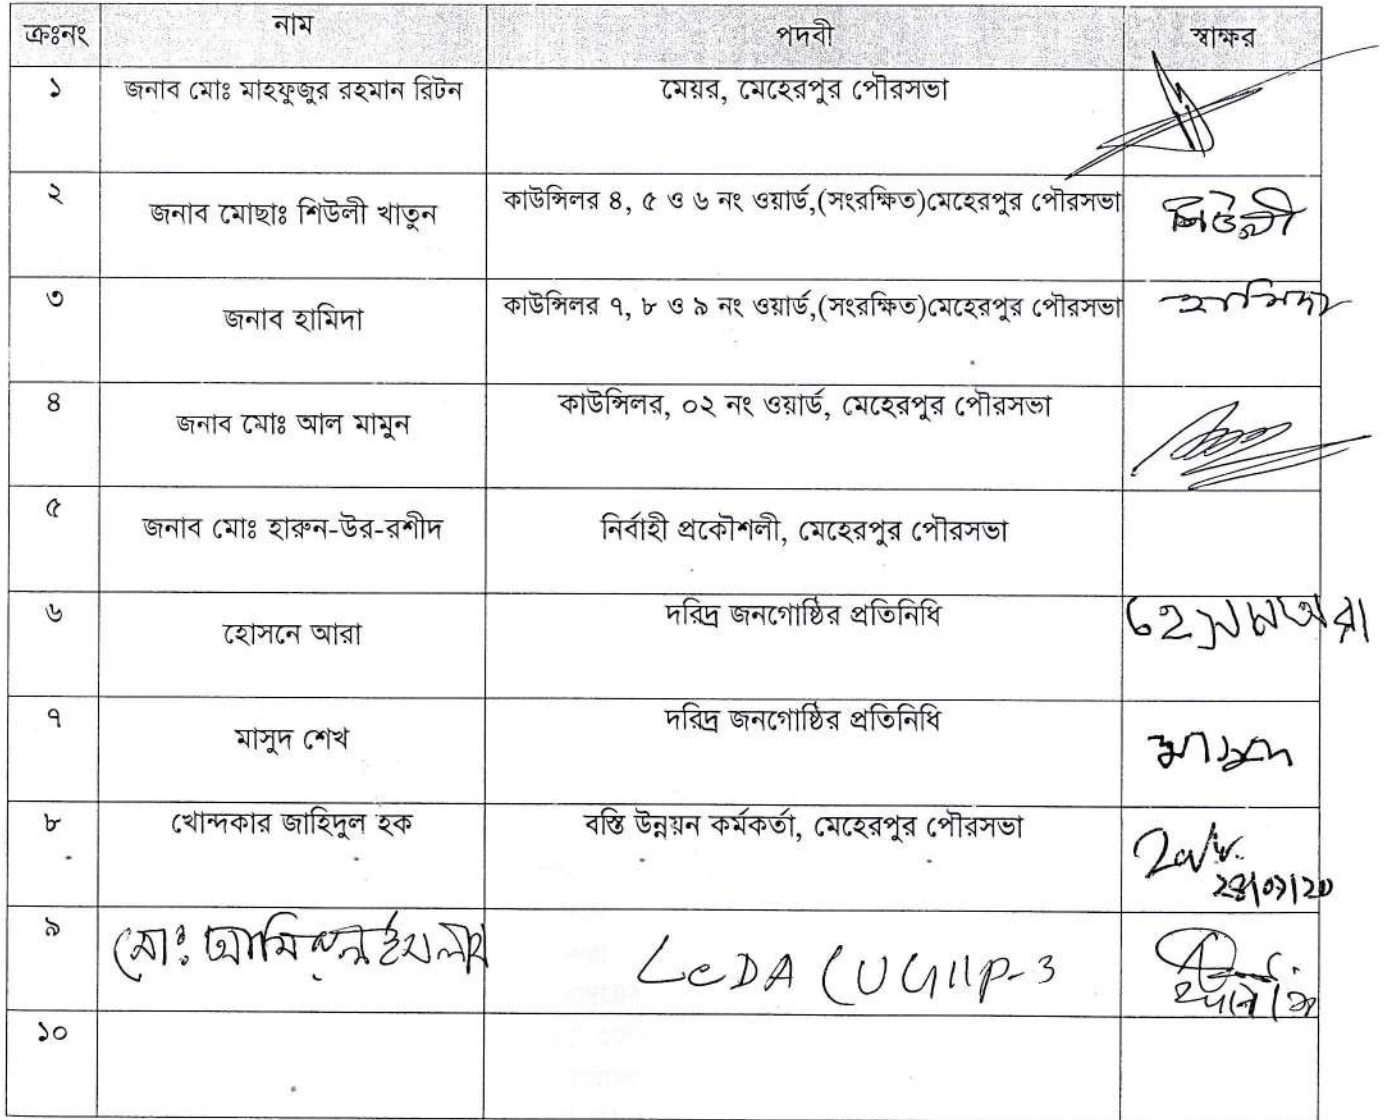 ক্রঃনং নাম পদবী স্বাক্ষর
১ জনাব মোঃ মাহফুজুর রহমান রিটন মেয়র, মেহেরপুর পৌরসভা
২ জনাব মোছাঃ শিউলী খাতুন কাউন্সিলর ৪, ৫ ও ৬ নং ওয়ার্ড,(সংরক্ষিত)মেহেরপুর পৌরসভা শিউলী
৩ জনাব হামিদা কাউন্সিলর ৭, ৮ ও ৯ নং ওয়ার্ড,(সংরক্ষিত)মেহেরপুর পৌরসভা হামিদা
৪ জনাব মোঃ আল মামুন কাউন্সিলর, ০২ নং ওয়ার্ড, মেহেরপুর পৌরসভা
৫ জনাব মোঃ হারুন-উর-রশীদ নির্বাহী প্রকৌশলী, মেহেরপুর পৌরসভা
৬ হোসনে আরা দরিদ্র জনগোষ্ঠির প্রতিনিধি হোসনেআরা
৭ মাসুদ শেখ দরিদ্র জনগোষ্ঠির প্রতিনিধি মাসুদ
৮ খোন্দকার জাহিদুল হক বস্তি উন্নয়ন কর্মকর্তা, মেহেরপুর পৌরসভা
৯ মোঃ আমিনুল ইসলাম LCDA (UGIIP-3
১০